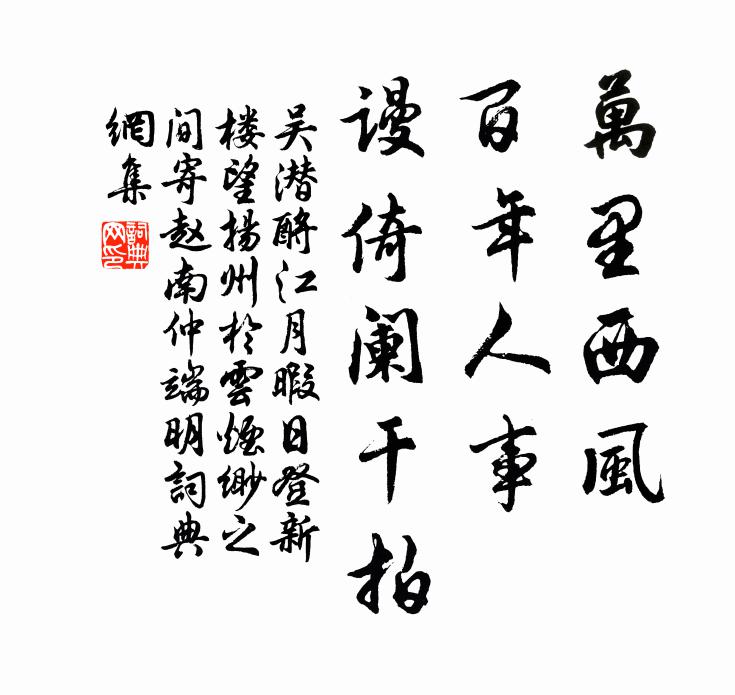 萬里西風
百年人事
謾倚阑干拍
吴潜酹江月暇日登新
楼望揚州於雲煙缈之
间寄赵南仲端明詞典
網集
詞典
网印